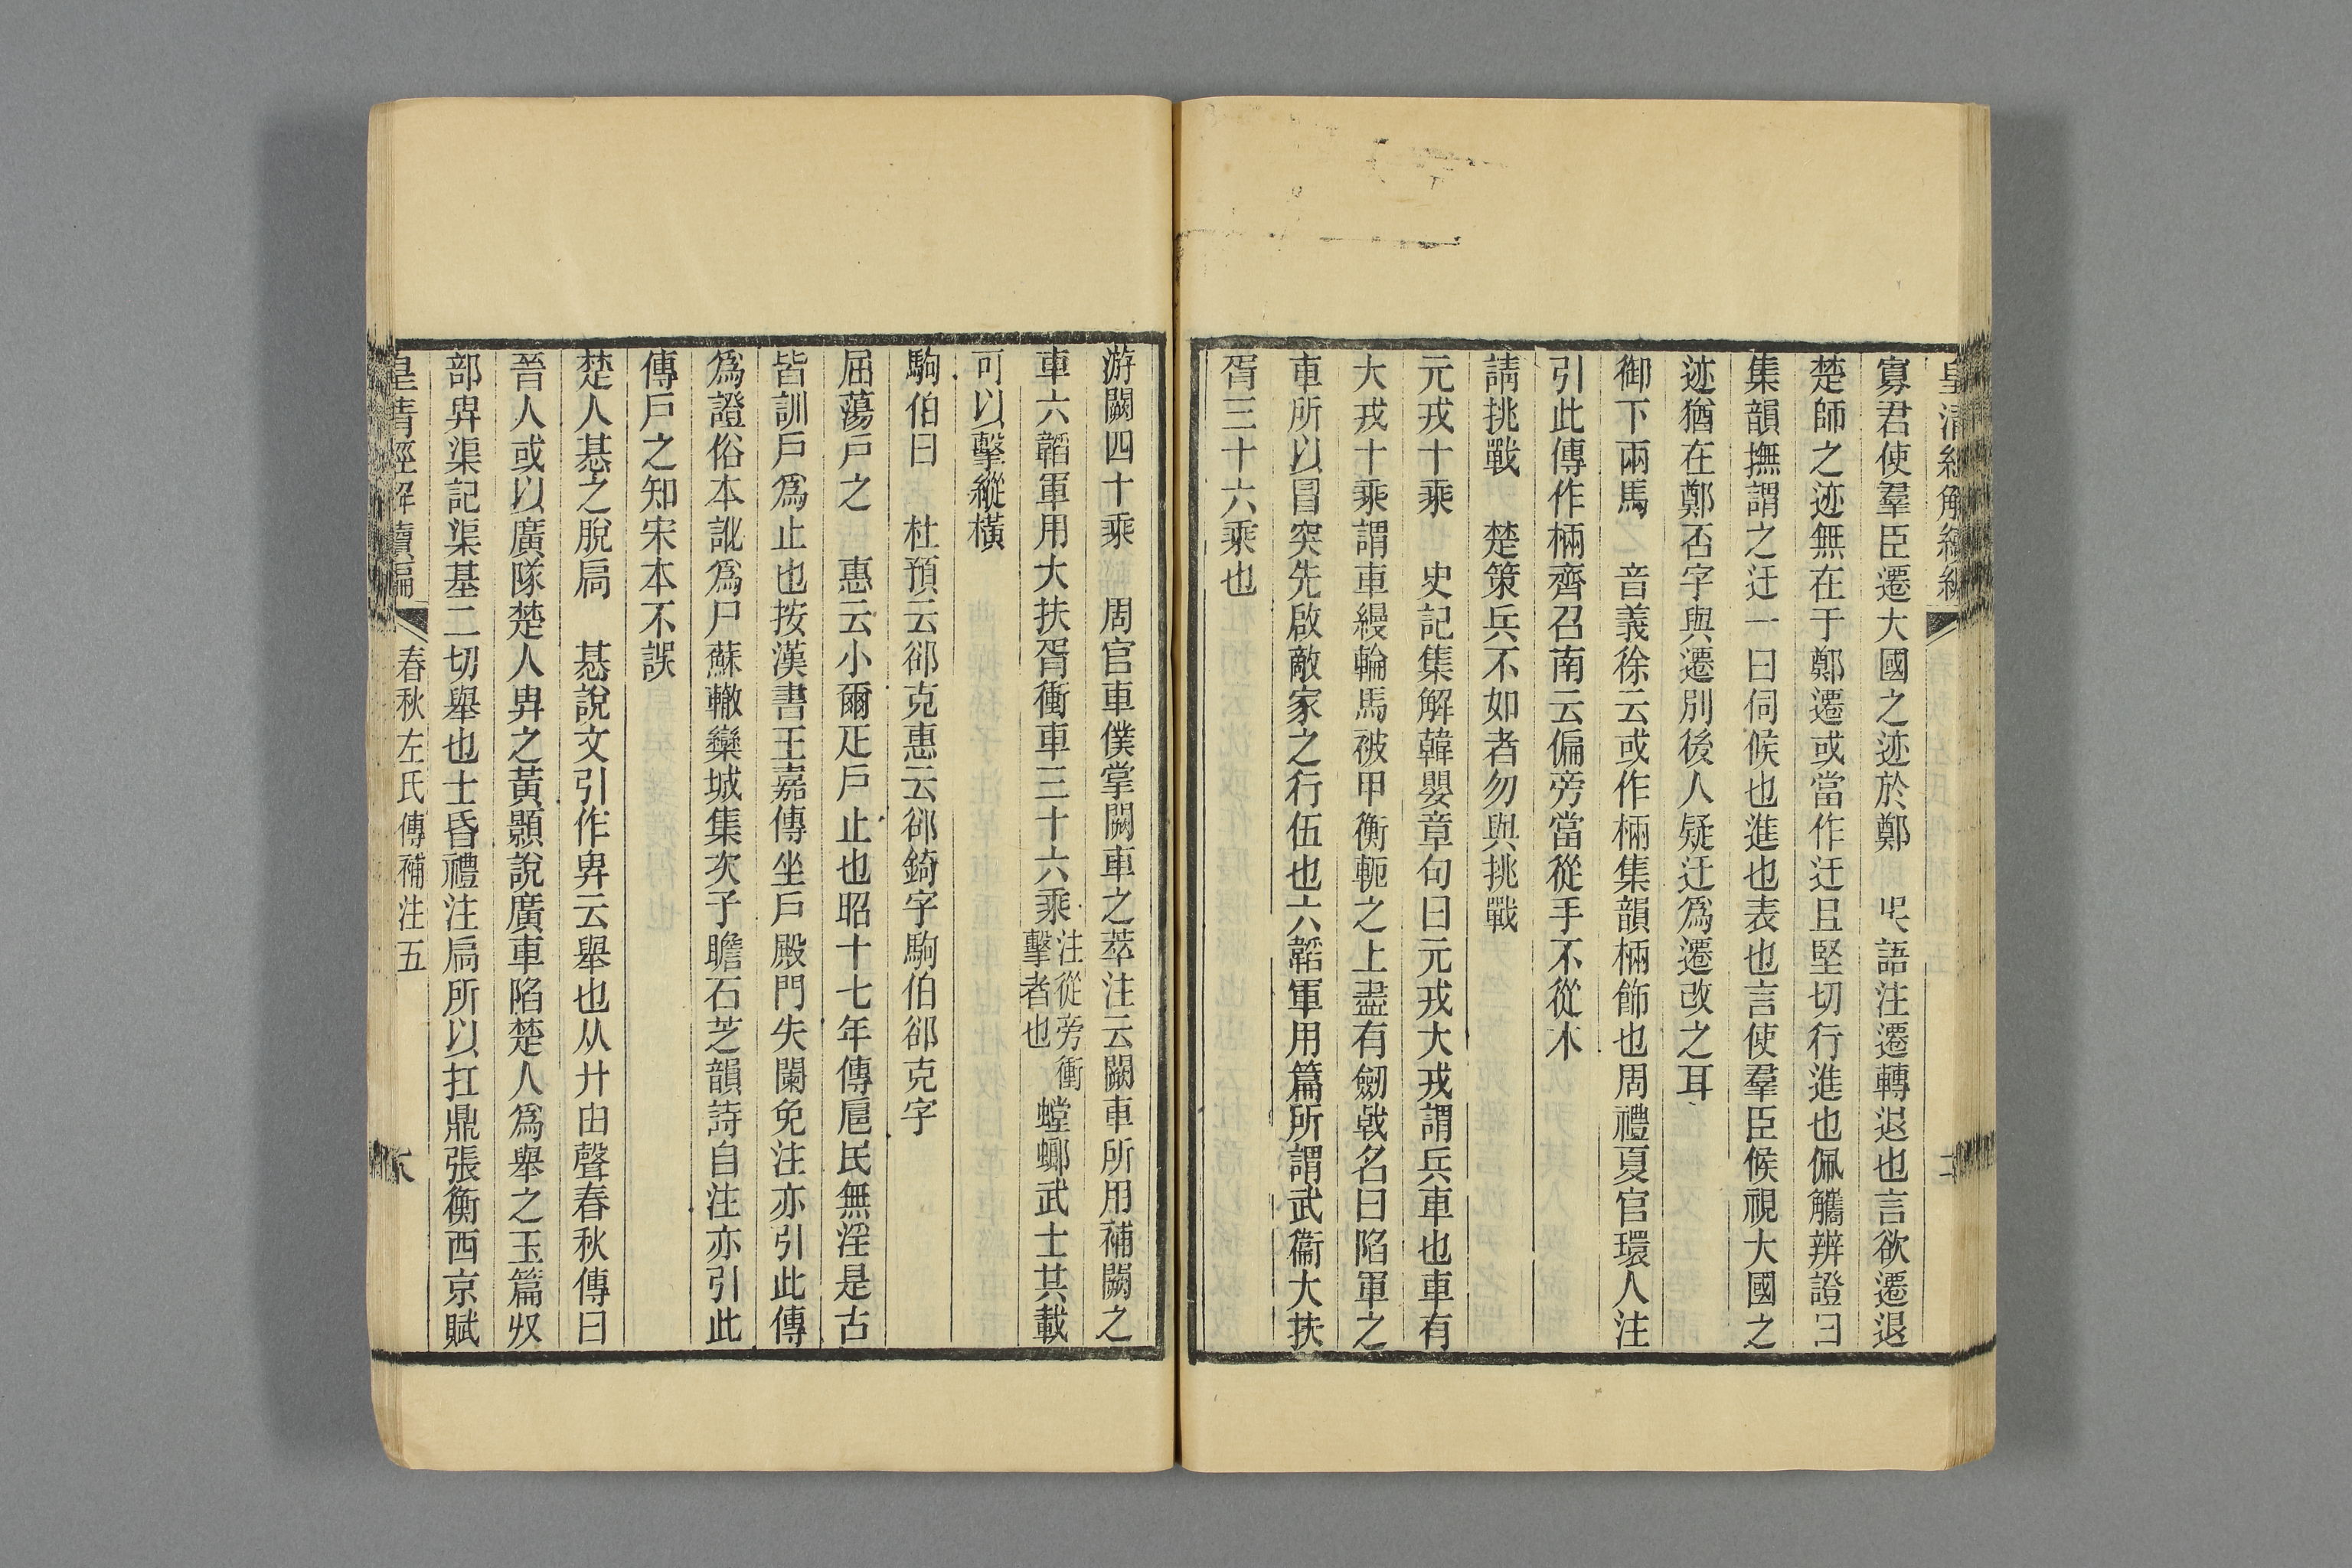 寡君使羣臣遷大國之迹於鄭　吳語注遷轉退也言欲遷退
楚師之迹無在于鄭遷或當作迁且堅切行進也佩觿辨證曰
集韻撫謂之迁一曰伺候也進也表也言使羣臣候視大國之
迹猶在鄭否字與遷別後人疑迁爲遷改之耳
御下兩馬　音義徐云或作㭃集韻㭃飾也周禮夏官環人注
引此傳作㭃齊召南云偏旁當從手不從木
請挑戰　楚策兵不如者勿與挑戰
元戎十乘　史記集解韓嬰章句曰元戎大戎謂兵車也車有
大戎十乘謂車縵輪馬被甲衡軛之上盡有劒戟名曰陷軍之
車所以冒突先啟敵家之行伍也六韜軍用篇所謂武衞大扶
胥三十六乘也
游闕四十乘　周官車僕掌闕車之萃注云闕車所用補闕之
車六韜軍用大扶胥衝車三十六乘注從旁衝擊者也螳螂武士共載
可以擊縱橫
駒伯曰　杜預云郤克惠云郤錡字駒伯郤克字
屈蕩戸之　惠云小爾疋戸止也昭十七年傳扈民無淫是古
皆訓戸爲止也按漢書王嘉傳坐戸殿門失闌免注亦引此傳
爲證俗本訛爲尸蘇轍欒城集次子瞻石芝韻詩自注亦引此
傳戸之知宋本不誤
楚人惎之脫扃　惎說文引作𢍁云舉也从廾甶聲春秋傳曰
晉人或以廣隊楚人𢍁之黃顥說廣車陷楚人爲舉之玉篇収
部𢍁渠記渠基二切舉也士昏禮注扃所以扛鼎張衡西京賦
皇清經解續編　春秋左氏傳補注五